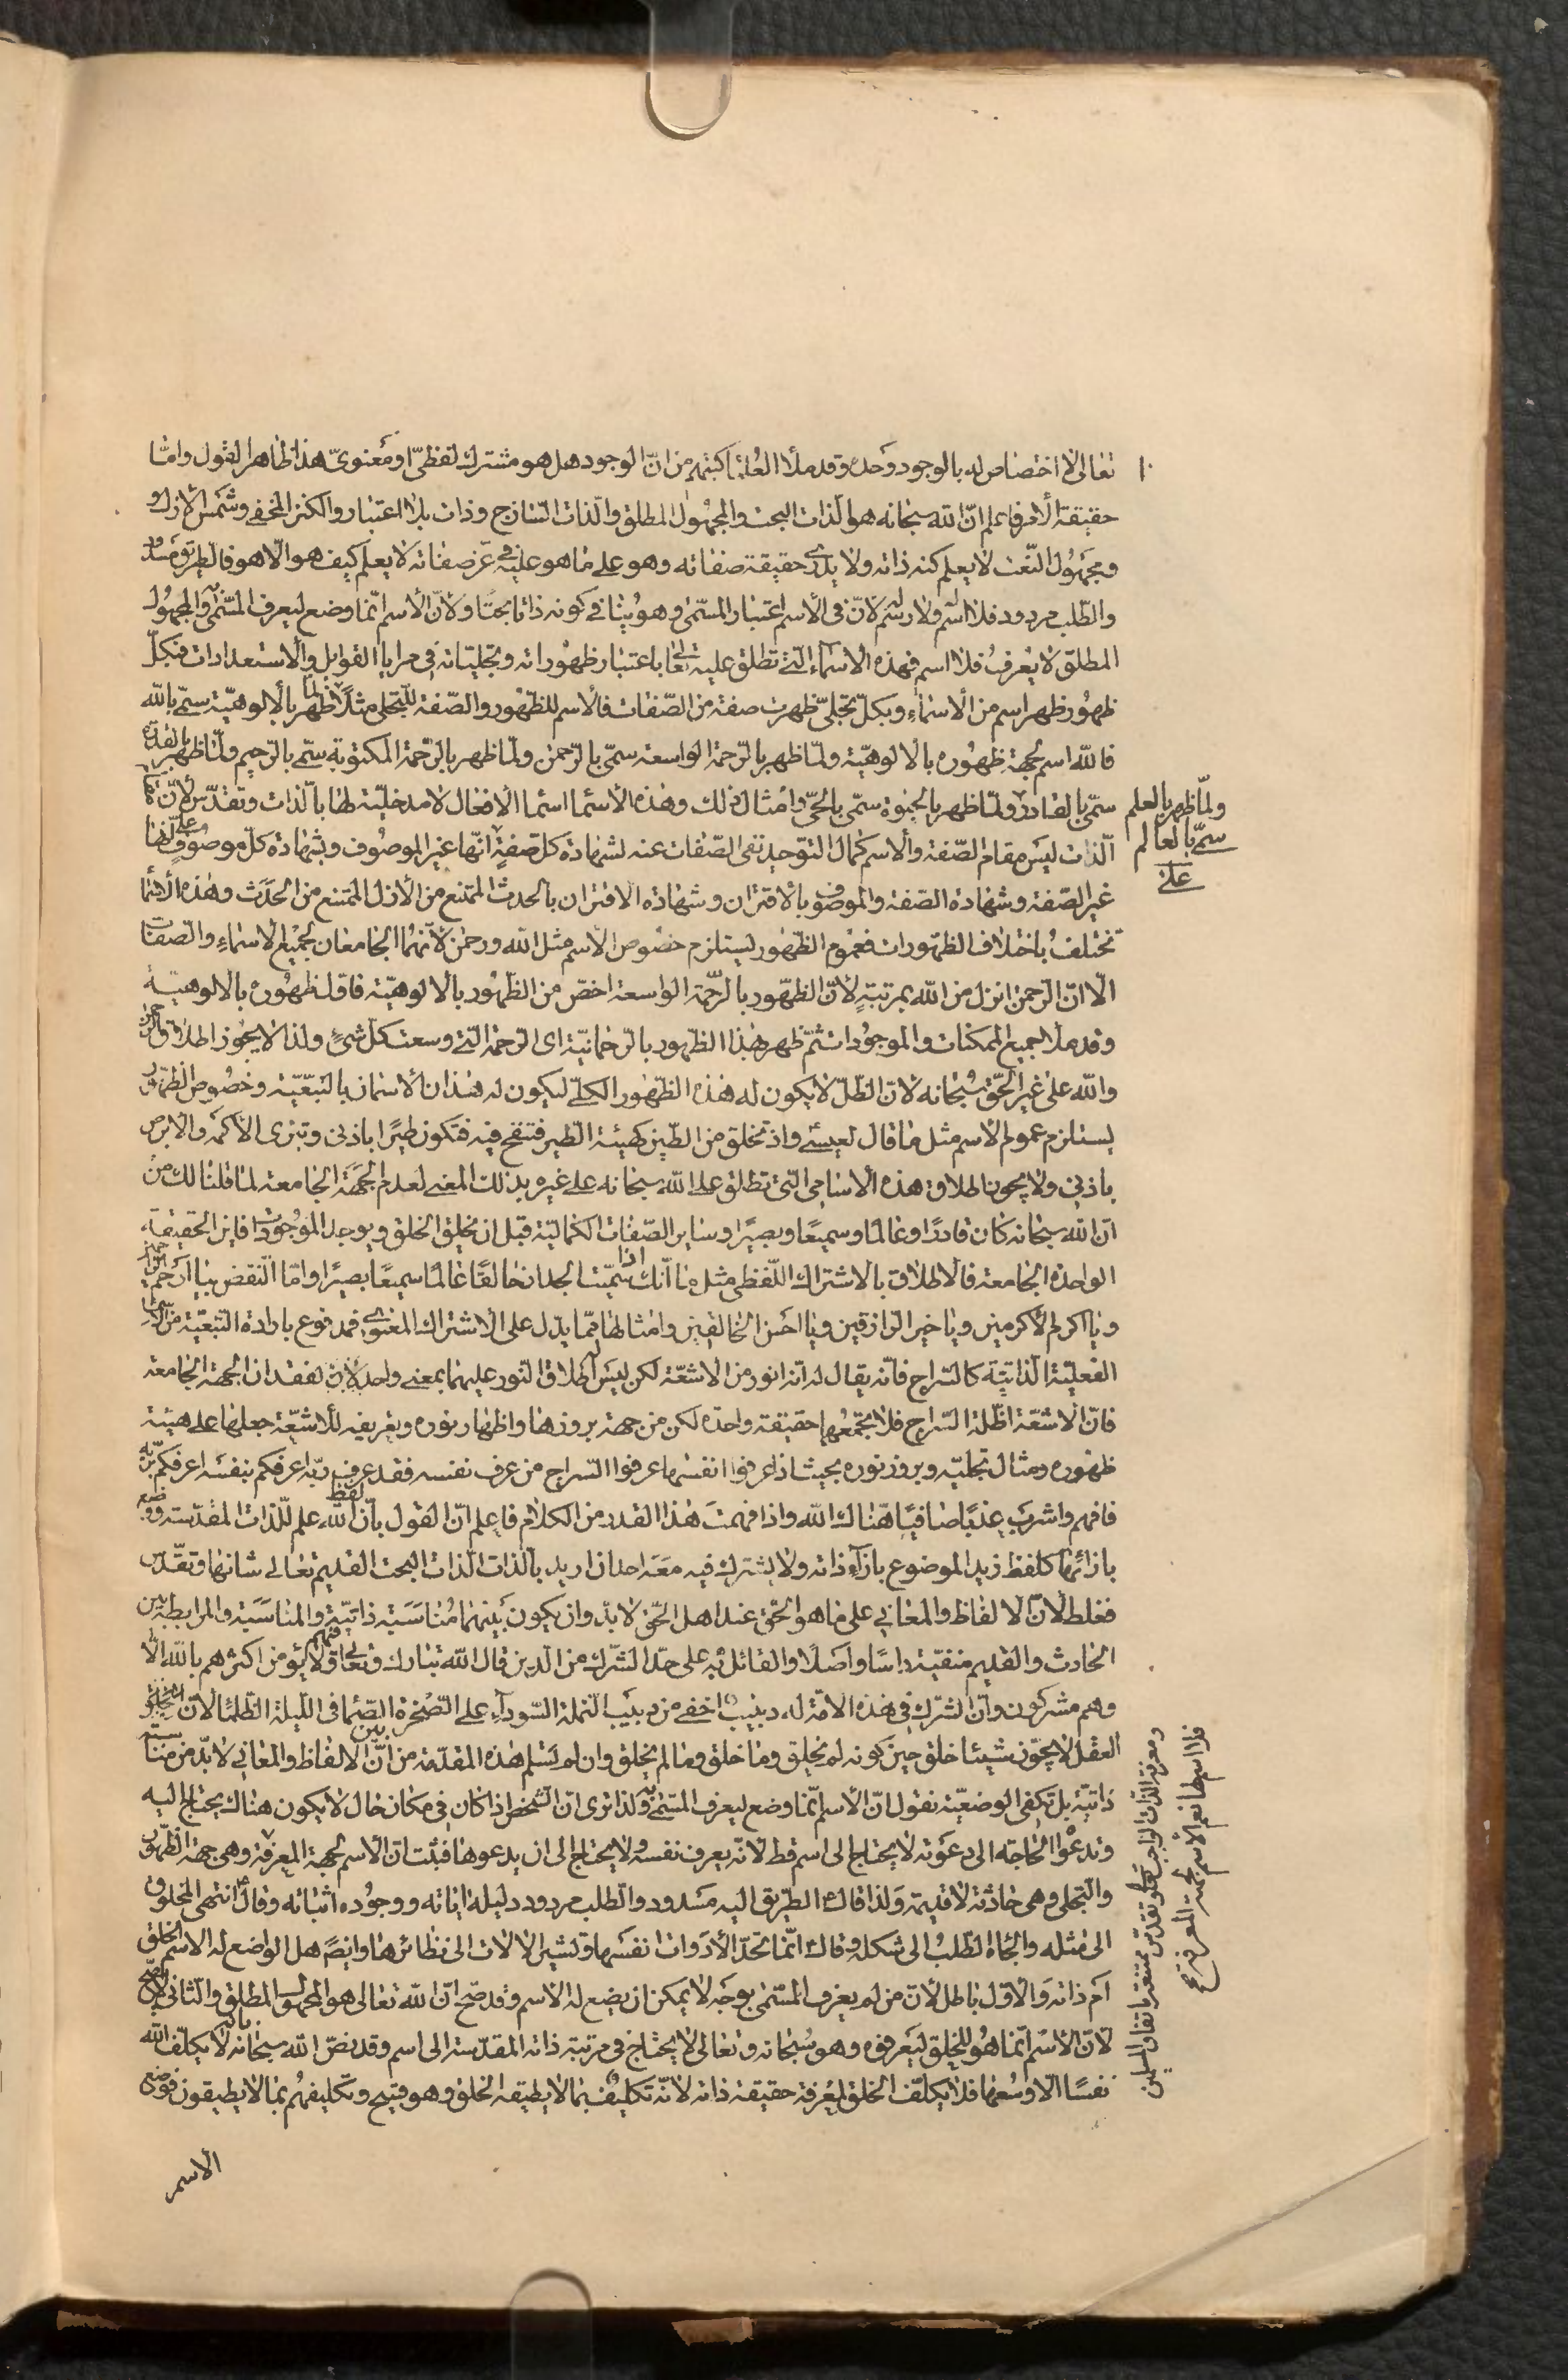 تعالی لا اختصاص له بالوجود وحده وقد ملأ العلماء کتبهم من انّ الوجود هل هو مشترك لفظیّ او معنویّ هذا ظاهر القول وامّا
حقیقة الامر فاعلم انّ الله سبحانه هو الذات البحت والمجهول المطلق والذات السّاذج وذات بلا اعتبار والکنز المخفی وشمس الازل و
ومجهول النّعت لا یعلم کنه ذاته ولا یدری حقیقة صفاته وهو علی ما هو علیه فی عزّ صفاته لا یعلم کیف هو الّا هو فالطریق مسدود
والطّلب مردود فلا اسم ولا رسم لانّ فی الاسم اعتبار المسمّی وهو ینافی کونه ذاتا بحتًا ولانّ الاسم انّما وضع لیعرف المسمّی به والمجهول
المطلق لا یعرفُ فلا اسم فهذه الاسماء الّتی تطلق علیه تعالی باعتبار ظهوراته وتجلیاته فی مرایا القوابل والاستعدادات فبکلّ
ظهور ظهر اسم من الاسماء وبکلّ تجلّی ظهرت صفة من الصّفات فالاسم للظهور والصّفة للتجلی مثلًا لما ظهر بالالوهیّة سمّی بالله
فالله اسم لجهة ظهوره بالالوهیّة ولمّا ظهر بالرّحمة الواسعة سمّی بالرّحمن ولمّا ظهر بالرّحمة المکتوبة سمّی بالرّحیم ولمّا ظهر بالقدرة
سمّی بالقادر ولمّا ظهر بالحیوة سمّی بالحیّ وامثال ذلك وهذه الاسماء اسماء الافعال لا مدخلیّة لها بالذات وتقدّس لانّ
ولمّا ظهر بالعلم
سمّی بالعالم
الذات لیس مقام الصّفة والاسم کمال التوحید نفی الصّفات عنه لشهادة کلّ صفةٍ علی انّها غیر الموصوف وبشهادة کلّ موصوفٍ
غیر الصّفة وشهادة الصّفة والموصوف بالاقتران وشهادة الاقتران بالحدث الممتنع من الازل الممتنع من الحدث وهذه الاسماء
تختلفُ باختلاف الظهورات فعموم الظهور یستلزم خصوص الاسم مثل الله ورحمن لانّهما الجامعان لجمیع الاسماء والصّفات
الّا انّ الرّحمن انزل من الله بمرتبةٍ لانّ الظهور بالرّحمة الواسعة اخصّ من الظهور بالالوهیّة فاوّل ظهوره بالالوهیة
وقد ملأ جمیع الممکنات والموجودات ثمّ ظهر هذا الظهور بالرّحمانیّة ای الرّحمة الّتی وسعت کلّ شیءٍ ولذا لا یجوز اطلاق الرحمن
والله علی غیر الحقّ سبحانه لانّ الظلّ لا یکون له هذه الظهور الکلّی لیکون له هذان الاسمان بالتبعیّة وخصوص الظهور
یستلزم عموم الاسم مثل ما قال لعیسی واذ تخلق من الطّین کهیئة الطّیر فتنفخ فیه فتکون طیرًا باذنی وتبری الاکمه والابرص
باذنی ولا یجوز اطلاق هذه الاسامی التی تطلق علی الله سبحانه علی غیره بذلك المعنی لعدم الجهة الجامعة لما قلنا لك من
ان الله سبحانه کان قادرًا وعالمًا وسمیعًا وبصیرًا وسایر الصّفات الکمالیّة قبل ان یخلق الخلق ویوجد الموجودات فاین الحقیقة
الواحدة الجامعة فالاطلاق بالاشتراك اللّفظی مثل ما انّك اذا سمّیت الجدار خالقًا عالمًا سمیعًا بصیرًا وامّا النّقض بیا ارحم الراحمین
ویا اکرم الاکرمین ویا خیر الرّازقین ویا احسن الخالقین وامثالها ممّا یدل علی الاشتراك المعنوی فمدفوع بارادة التبعیّة من الاسماء
الفعلیّة الذاتیّة کالسّراج فانّه یقال له انّه انور من الاشعّة لکن لیس اطلاق النّور علیهما بمعنی واحد لفقدان الجهة الجامعة
فانّ الاشعّة اظلّة السّراج فلا یجمعها حقیقة واحدة لکن من جهة بروزها واظهار نوره وتعریفه للاشعّة جعلها علی هیئة
ظهوره ومثال تجلیّه وبروز نوره بحیث اذا عرفوا انفسها عرفوا السّراج من عرف نفسه فقد عرف ربّه اعرفکم بنفسه اعرفکم بربّه
فافهم واشرب عذبًا صافیًا هناك الله واذا فهمت هذا القدر من الکلام فاعلم انّ القول بانّ لفظ الله علم للّذات المقدّسة ووضع
بازائها کلفظ زید الموضوع بازآء ذاته ولا یشترك فیه معه احد ان ارید بالذات الذات البحت القدیم تعالی شانها وتقدّس
فغلط لانّ الالفاظ والمعانی علی ما هو الحقّ عند اهل الحقّ لا بدّ وان یکون بینهما مناسبة ذاتیّة والمناسبة والمرابطة بین
الحادث والقدیم منفیّة راسًا واصلًا والقائل به علی حدّ الشرك من الّذین قال الله تبارك وتعالی فیهم ولا یؤمن اکثرهم بالله الّا
وهم مشرکون وانّ الشرك فی هذه الامّة له دبیب اخفی من دبیب النملة السّودآء علی الصّخرة الصّمّا فی اللیلة الظّلماء لانّ
العقل لا یجوّز شیئا خلق حین کونه لم یخلق وما خلق وما لم یخلق وان لم تسلم هذه المقدّمة من انّ بین الالفاظ والمعانی لا بدّ من مناسبة
ذاتیّة بل تکفی الوضعیّة نقول انّ الاسم انّما وضع لیعرف المسمّی به ولذا تری انّ الشخص اذا کان فی مکان خال لا یکون هناك یحتاج الیه
وتدعو الحاجة الی دعوته لا یحتاج الی اسم قط لانّه یعرف نفسه ولا یحتاج الی ان یدعوها فثبت انّ الاسم لجهة المعرفة وهی جهة الظهور
والتجلی وهی حادثة لا قدیمة ولذا قال الطّریق الیه مسدود والطلب مردود دلیله ایاته ووجوده اثباته وقال انتهی المخلوق
الی مثله والجاه الطلب الی شکله وقال انّما تحدّ الادوات انفسها وتشیر الالات الی نظائرها وایضًا هل الواضع له الاسم الخلق
ام ذاته والاوّل باطل لانّ من لم یعرف المسمّی بوجه لا یمکن ان یضع له الاسم وقد صحّ انّ الله تعالی هو المجهول المطلق والثانی
لانّ الاسم انّما هو للخلق لیعرفوه وهو سبحانه وتعالی لا یحتاج فی مرتبة ذاته المقدّسة الی اسم وقد نصّ الله سبحانه بانه لا یکلّف الله
نفسًا الّا وسعها فلا یکلّف الخلق لمعرفة حقیقة ذاته لانّه تکلیف بما لا یطیقه الخلق وهو قبیح وتکلیفهم بما لا یطیقون فوضع
ومعرفة الذات الواجب تعالی وتقدّس ممتنعة باتفاق المسلمین
فلا اسم لها نعم الاسم لجهة المعرفة
الاسم